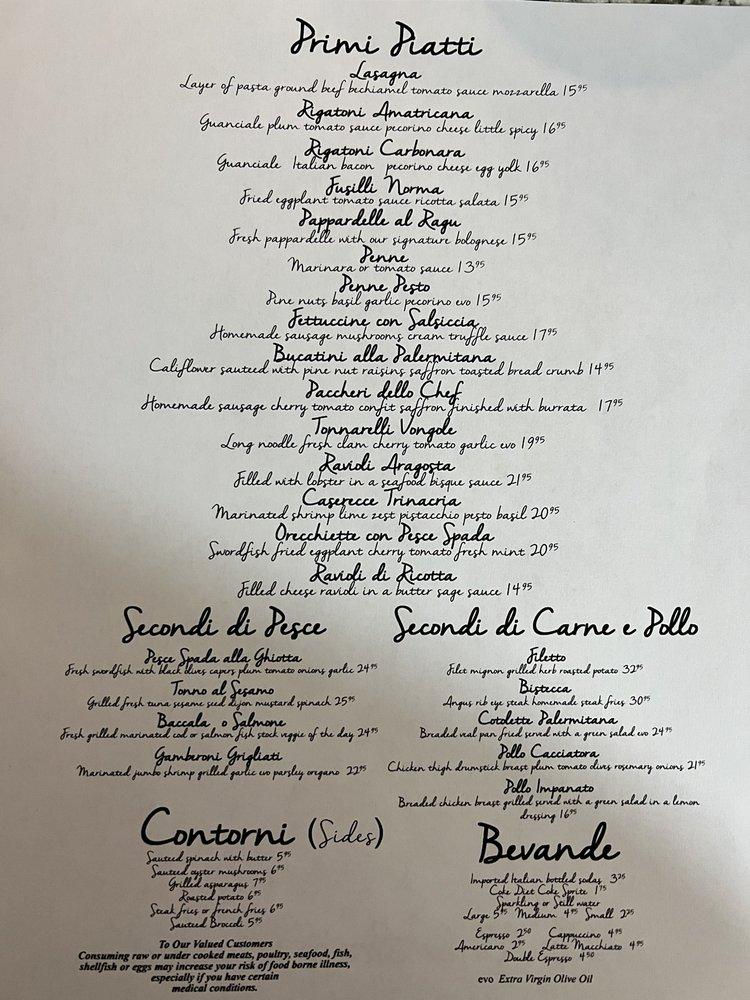 Primi Piatti
Lasagna
Layer of pasta ground beef bechiamel tomato sauce mozzarella 15⁹⁵
Rigatoni Amatricana
Guanciale plum tomato sauce pecorino cheese little spicy 16⁹⁵
Rigatoni Carbonara
Guanciale Italian bacon pecorino cheese egg yolk 16⁹⁵
Fusilli Norma
Fried eggplant tomato sauce ricotta salata 15⁹⁵
Pappardelle al Ragu
Fresh pappardelle with our signature bolognese 15⁹⁵
Penne
Marinara or tomato sauce 13⁹⁵
Penne Pesto
Pine nuts basil garlic pecorino evo 15⁹⁵
Fettuccine con Salsiccia
Homemade sausage mushrooms cream truffle sauce 17⁹⁵
Bucatini alla Palermitana
Califlower sauteed with pine nut raisins saffron toasted bread crumb 14⁹⁵
Paccheri dello Chef
Homemade sausage cherry tomato confit saffron finished with burrata 17⁹⁵
Tonnarelli Vongole
Long noodle fresh clam cherry tomato garlic evo 19⁹⁵
Ravioli Aragosta
Filled with lobster in a seafood bisque sauce 21⁹⁵
Caserecce Trinacria
Marinated shrimp lime zest pistacchio pesto basil 20⁹⁵
Orecchiette con Pesce Spada
Swordfish fried eggplant cherry tomato fresh mint 20⁹⁵
Ravioli di Ricotta
Filled cheese ravioli in a butter sage sauce 14⁹⁵
Secondi di Pesce
Pesce Spada alla Ghiotta
Fresh swordfish with black olives capers plum tomato onions garlic 24⁹⁵
Tonno al Sesamo
Grilled fresh tuna sesame seed dijon mustard spinach 25⁹⁵
Baccala o Salmone
Fresh grilled marinated cod or salmon fish stock veggie of the day 24⁹⁵
Gamberoni Grigliati
Marinated jumbo shrimp grilled garlic evo parsley oregano 22⁹⁵
Secondi di Carne e Pollo
Filetto
Filet mignon grilled herb roasted potato 32⁹⁵
Bistecca
Angus rib eye steak homemade steak fries 30⁹⁵
Cotolette Palermitana
Breaded veal pan fried served with a green salad evo 24⁹⁵
Pollo Cacciatora
Chicken thigh drumstick breast plum tomato olives rosemary onions 21⁹⁵
Pollo Impanato
Breaded chicken breast grilled served with a green salad in a lemon
dressing 16⁹⁵
Contorni (Sides)
Sauteed spinach with butter 5⁹⁵
Sauteed oyster mushrooms 6⁹⁵
Grilled asparagus 7⁹⁵
Roasted potato 6⁹⁵
Steak fries or french fries 6⁹⁵
Sauteed Broccoli 5⁹⁵
To Our Valued Customers
Consuming raw or under cooked meats, poultry, seafood, fish,
shellfish or eggs may increase your risk of food borne illness,
especially if you have certain
medical conditions.
Bevande
Imported Italian bottled sodas 3²⁵
Coke Diet Coke Sprite 1⁷⁵
Sparkling or Still water
Large 5⁹⁵ Medium 4⁹⁵ Small 2²⁵
Espresso 2⁵⁰ Cappuccino 4⁹⁵
Americano 2⁹⁵ Latte Macchiato 4⁹⁵
Double Espresso 4⁵⁰
evo Extra Virgin Olive Oil